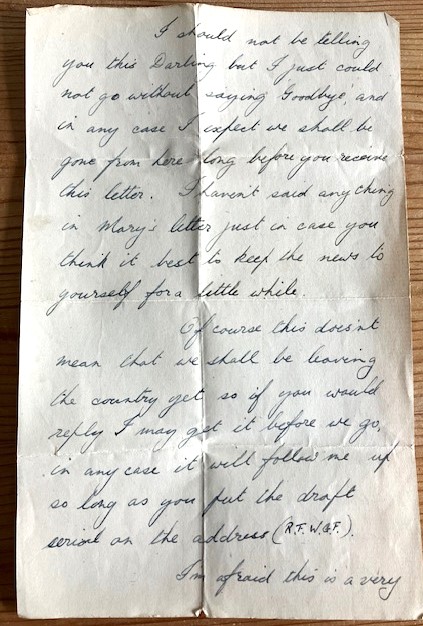 I should not be telling
you this Darling but I just could
not go without saying 'Goodbye', and
in any case I expect we shall be
gone from here long before you receive
this letter. I haven't said anything
in Mary's letter just in case you
think it best to keep the news to
yourself for a little while.
Of course this doesn't
mean that we shall be leaving
the country yet so if you would
reply I may get it before we go,
in any case it will follow me up
so long as you put the draft
serial on the address (R.F.W.G.F.).
I'm afraid this is a very